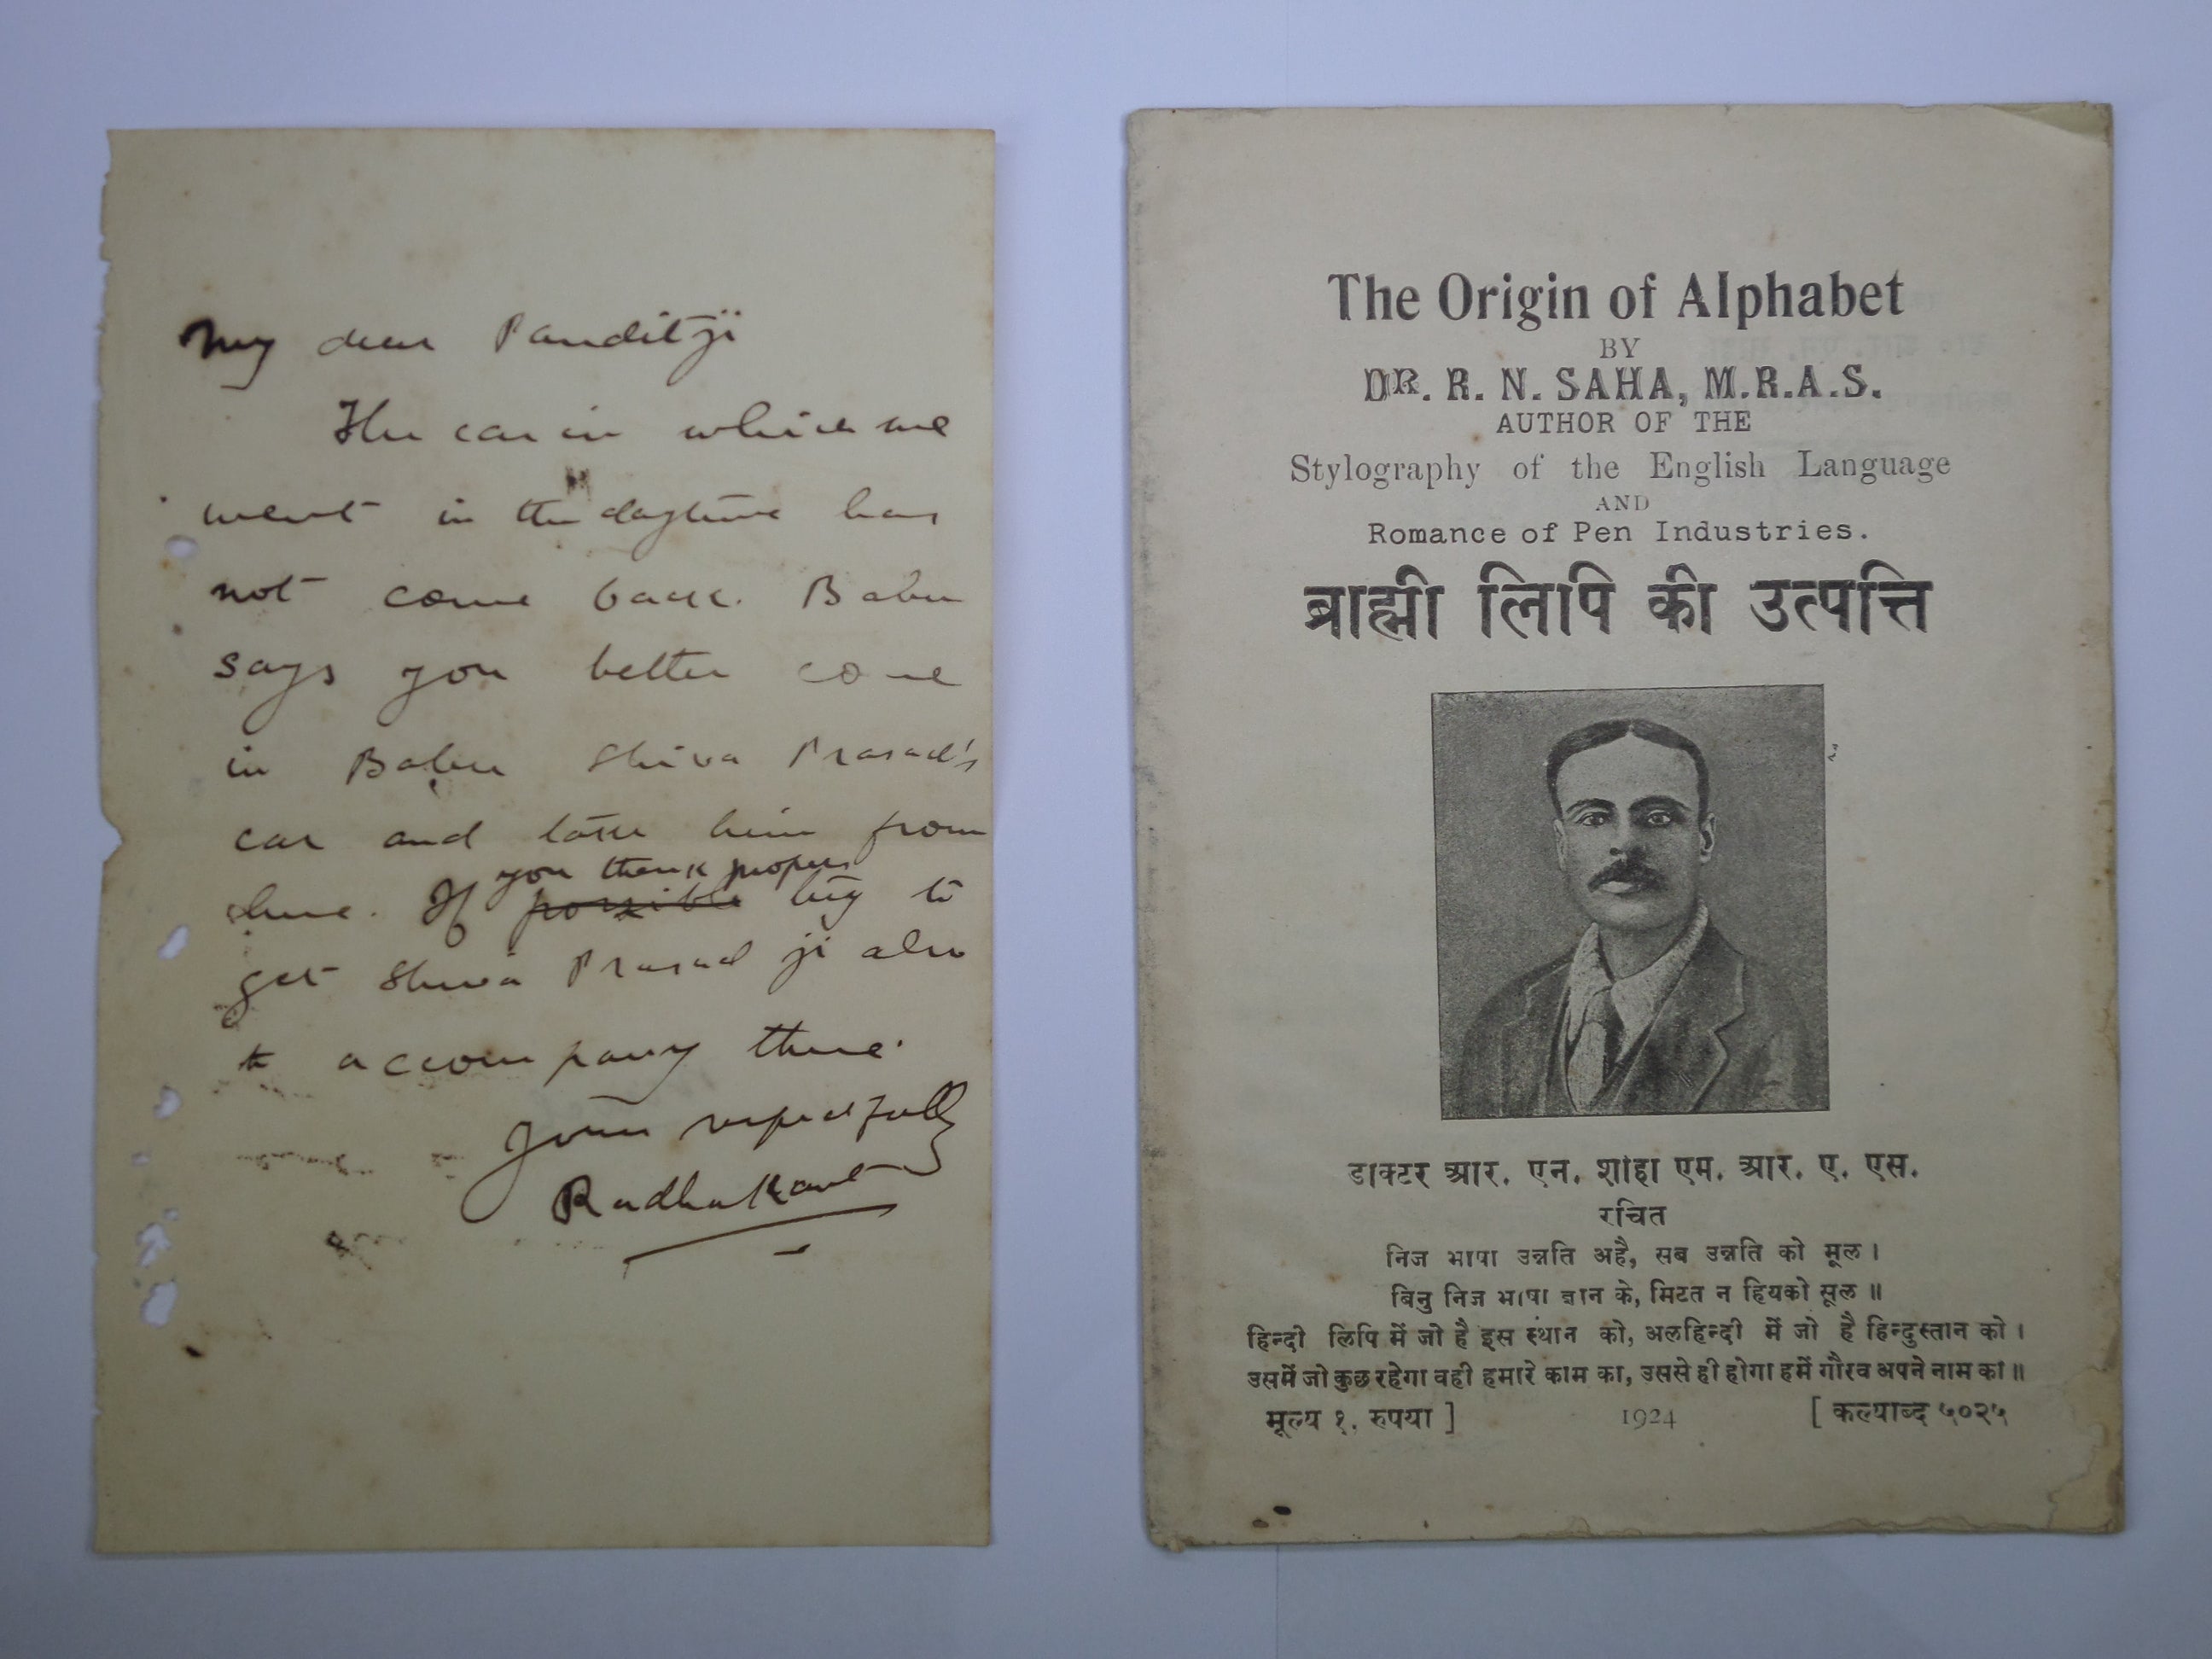 My dear Panditji
The car in which we
went in the daytime has
not come back. Babu
says you better come
in Babu Shiva Prasad's
car and take him from
there. If you think proper possible try to
get Shiva Prasad ji also
to accompany there.
Yours respectfully
Radhakant
The Origin of Alphabet
BY
DR. R. N. SAHA, M.R.A.S.
AUTHOR OF THE
Stylography of the English Language
AND
Romance of Pen Industries.
ब्राह्मी लिपि की उत्पत्ति
डाक्टर आर. एन. शाहा एम. आर. ए. एस.
रचित
निज भाषा उन्नति अहै, सब उन्नति को मूल ।
बिनु निज भाषा ज्ञान के, मिटत न हियको सूल ॥
हिन्दी लिपि में जो है इस स्थान को, अलहिन्दी में जो है हिन्दुस्तान को ।
उसमें जो कुछ रहेगा वही हमारे काम का, उससे ही होगा हमें गौरव अपने नाम का ॥
मूल्य १. रुपया ] 1924 [ कल्याब्द ५०२५